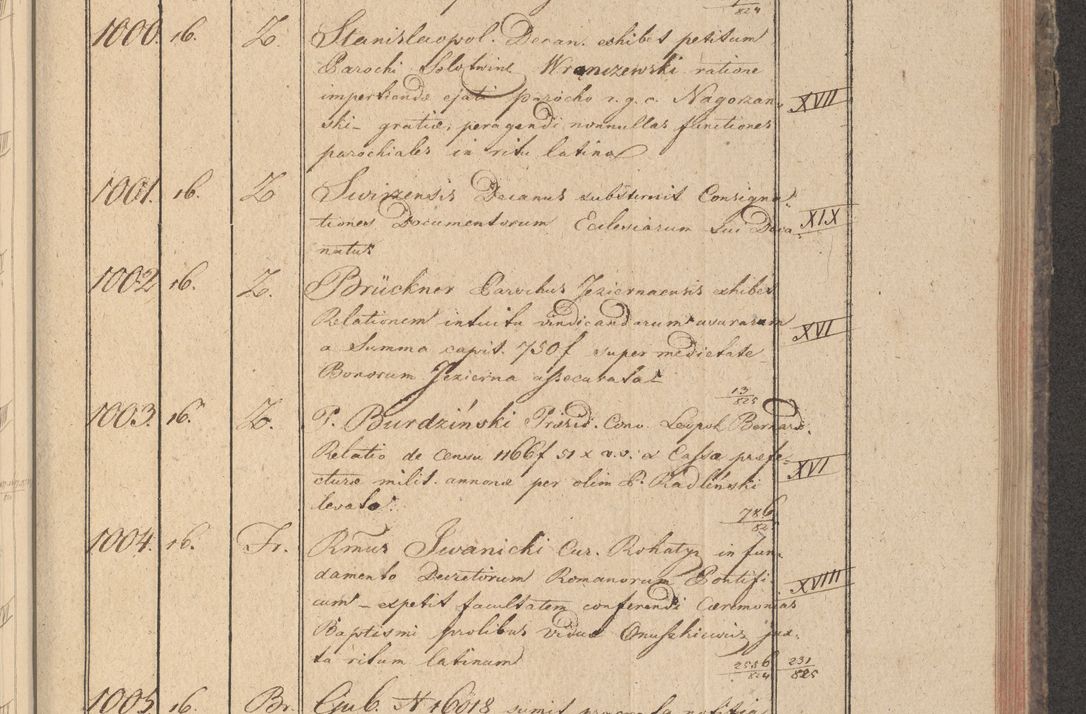 824
1000. 16. Z. Stanislaopol. Decan. exhibet petitum
Parochi Slotwine Wranczewski ratione
impertiendæ ejati parocho r. g. c. Nagorzan- XVII
ski - gratiæ, peragendi nonnullas functiones
parochiales in ritu latino
1001. 16. Z Swirzensis Decanus substernit Consigna-
tionem Documentorum Ecclesiarum sui Deca- XIX
natus
1002 16. Z. Brückner Parochus Jeziernaensis exhibet
Relationem intuitu vindicandarum usurarum XVI
a Summa capit. 750 f super medietate
Bonorum Jezierna assecurata.
13/825
1003. 16. Z. P. Burdziński Præsid. Conv. Leopol. Bernard.
Relatio de censu 1166 f 51 x v. v. e Cassa præfe- XVI
cturæ milit. annonæ per olim P. Kadlinski
levato.
786/825
1004. 16. Fr. Rmus Iwanicki Cur. Rohatyn in fun-
damento Decretorum Romanorum Pontifi- XVIII
cum - expetit facultatem conferendi Cæremonias
Baptismi prolibus viduæ Onuszkiewicz jux-
ta ritum latinum
2556/824 231/825
1005 16. Br. Gub. N 16018 sumit notitia